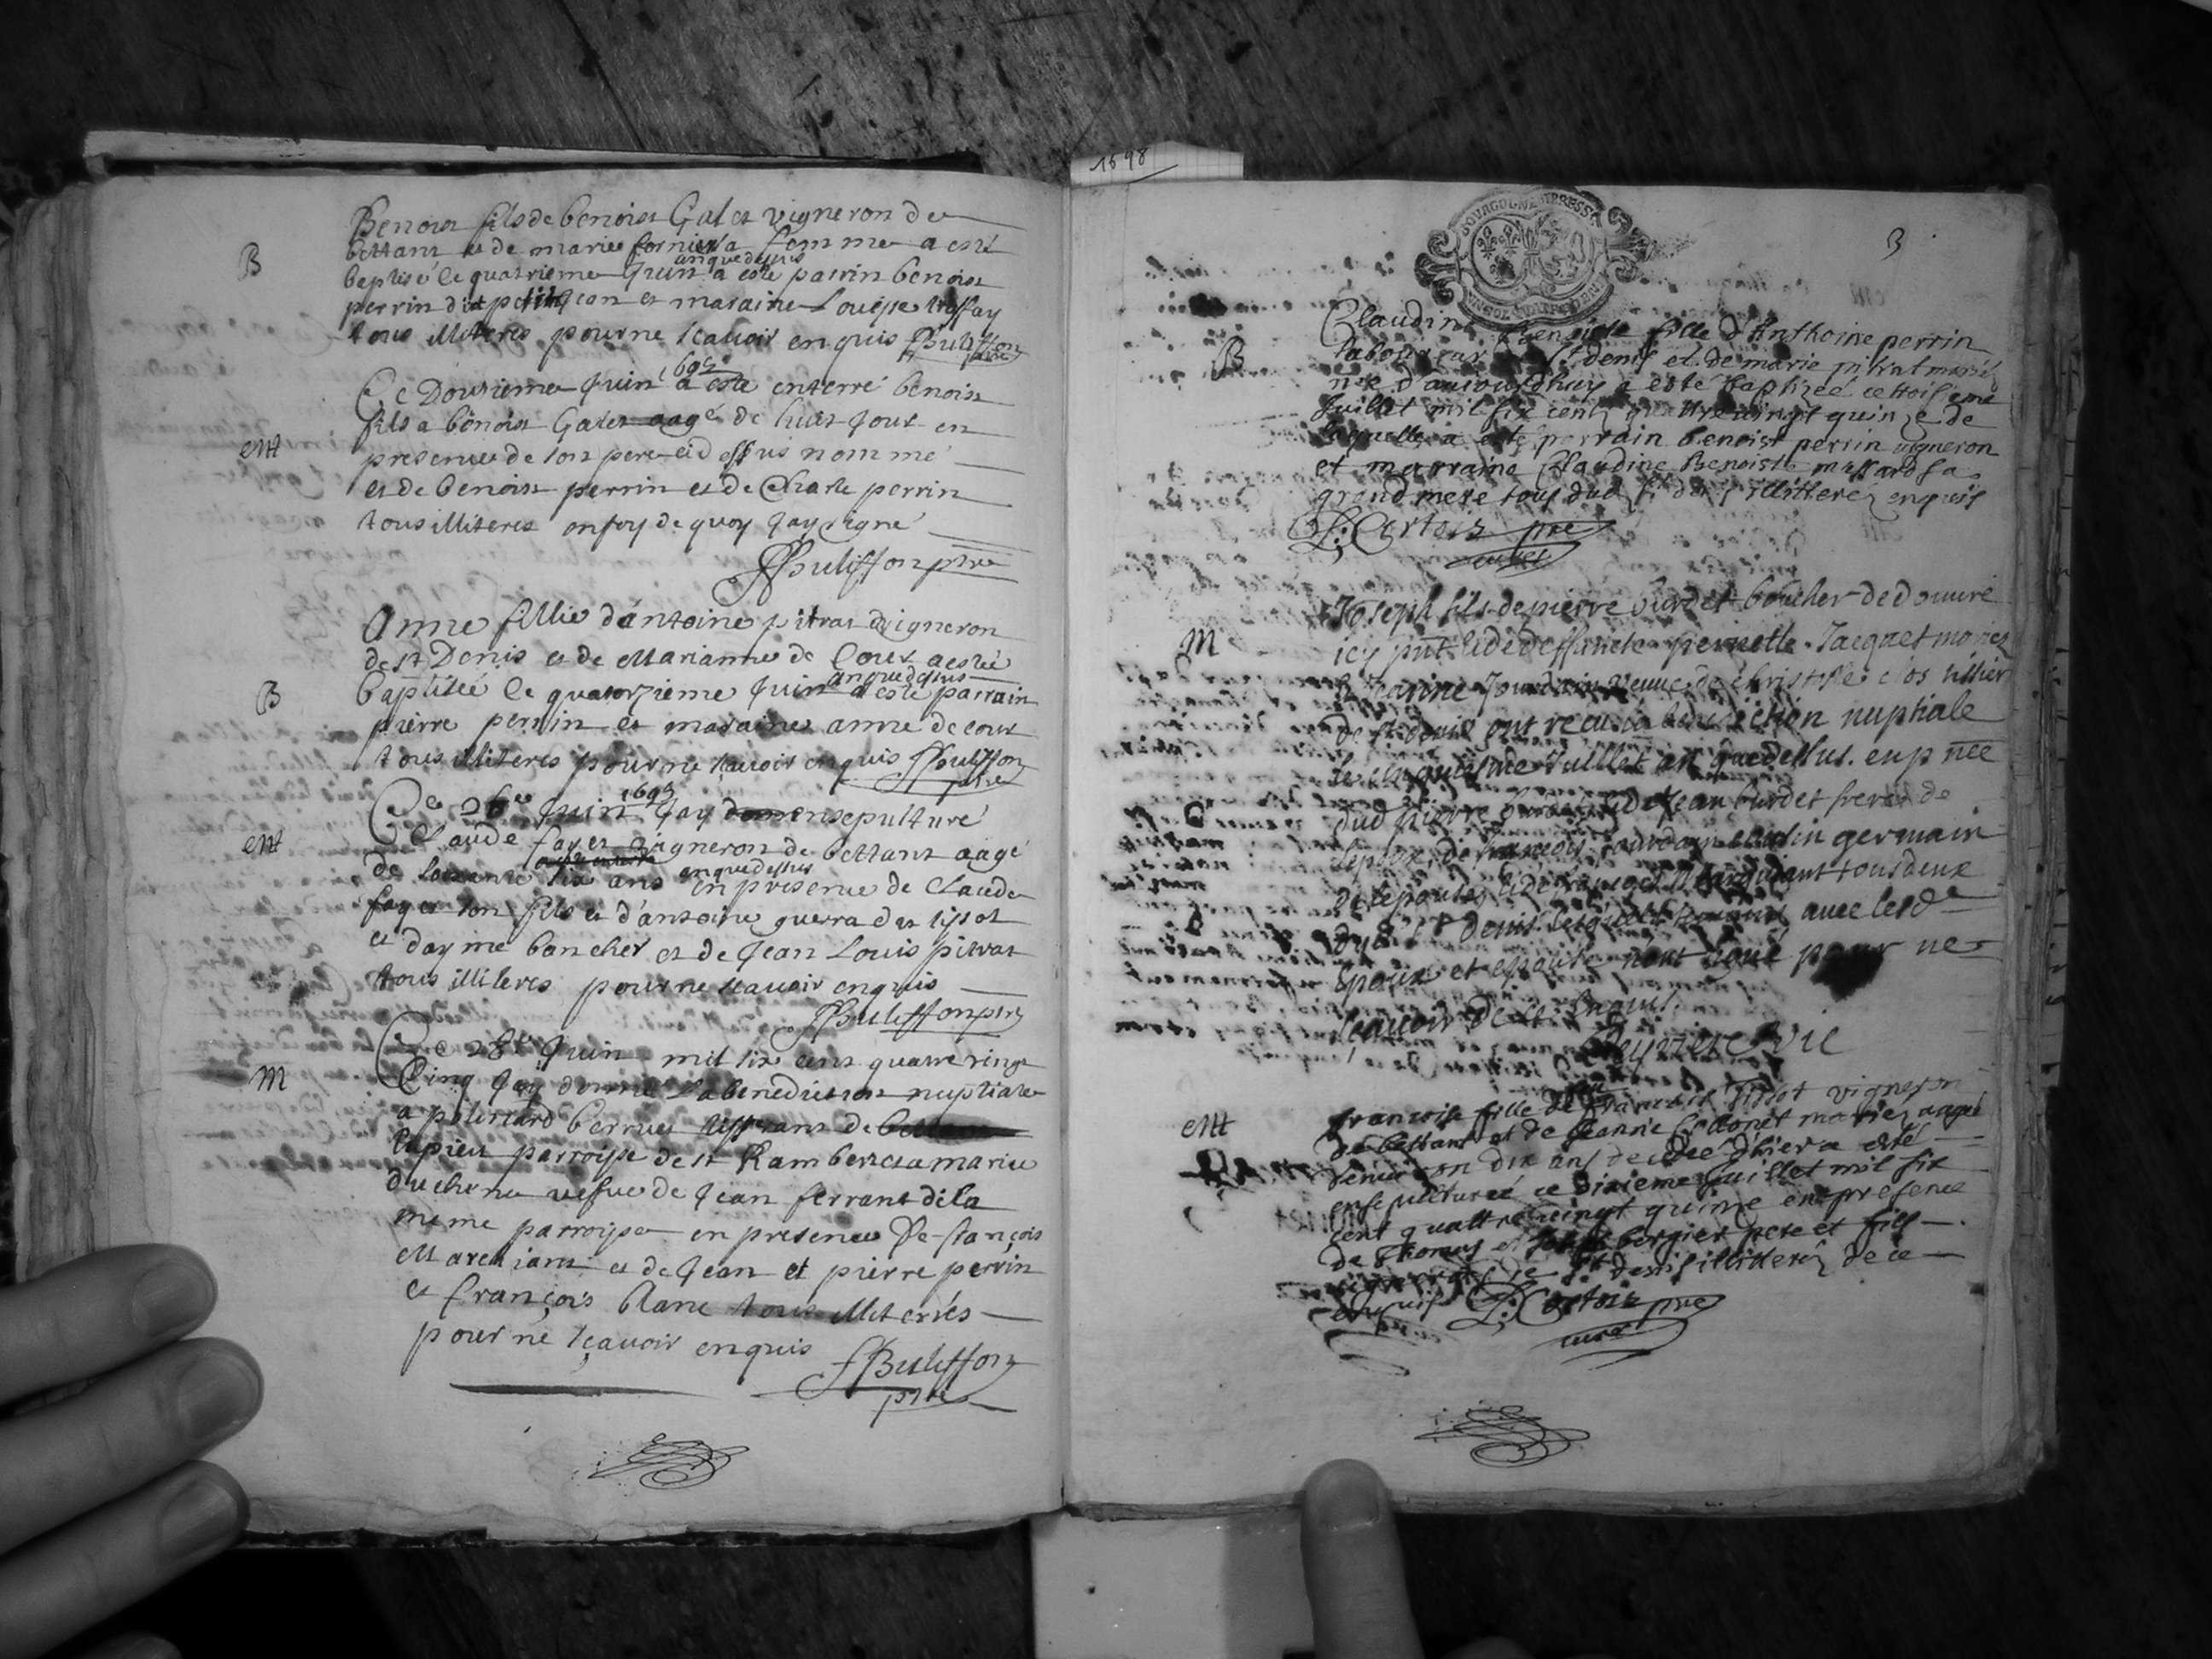 Benoist fils de benoist Galet vigneron de
B
bettant et de marie fornier sa femme a esté
an que dessus
baptisé le quatrieme Juin a esté parrin benoist
perrin dit petit Jean et maraine Louise
tous illiteres pour ne scavoir enquis Bulisson
ptre
1695
Ce Douzieme Juin a esté enterré benoist
fils a benoist Galet aagé de huit Jour en
ent
presence de son pere cid essus nommé
et de benoist perrin et de Charle perrin
tous illiteres en foy de quoy Jay signé
Bulisson ptre
Anne fillie dantoine pitrat vigneron
de st Denis et de Marianne de Cour a esté
an que dessus
B
baptisée le quatorzieme Juin a esté parrain
pierre perrin et maraine anne de cour
tous illiteres pour ne scavoir enquis Bulisson
ptre
1695
Ce 26e Juin Jay ensepulturé
ent
Claude fayet vigneron de bettant aagé
an que dessus
de soixante six ans en presence de Claude
fayet son fils et d'antoine guerra dit tissot
et daymé bancher et de Jean Louis pitrat
tous illiteres pour ne scavoir enquis
Bulisson ptre
Ce 28e Juin mil six cent quatre vingt
M
Cinq Jay donné la benediction nuptiale
a berrue de
parroisse de st Rambert et a marie
duchene vefve de Jean ferrant de la
meme parroisse en presence De françois
Marchiant et de Jean et pierre perrin
et françois blanc tous illiterés
pour ne sçavoir enquis
Bulisson
ptre
1698
BOURGOGNE BRESSE
3
Claudine Benoiste fille d'Anthoine perrin
B
laboureur de St denis et de marie pitrat mariés
née d'aujourdhuy a esté baptizée ce troisieme
Juillet mil six cent quattre vingt quinze de
laquelle a esté parrain benoist perrin vigneron
et marraine Claudine Benoiste sa
grand mere tous dud st denis illitterez enquis
Certois pre
curé
Joseph fils de pierre burdet boucher de douvre
M
icy pnt et de deffuncte pernette Jacquet mariez
et Jeanine Jourdain veuve de christofle clos
de st denis ont receu la benediction nuptiale
le cinquieme Juillet an que dessus. en pnce
dud pierre burdet et de Jean burdet frere de
lepoux, de françois Jourdain cousin germain
de lepouse, et de tous deux
dud st denis lesquels avec lesd
epoux et epouse n'ont signé pour ne
scavoir de ce enquis.
vic
francoise fille de francois Tissot vigneron
ent
de bettant et de Jeanne mariez aagée
denviron dix ans decedée d'hier a esté
ensepulturée ce dixieme Juillet mil six
cent quattre vingt quinze en presence
de Thomas et bergier pere et fils
vignerons de St denis illitterez de ce
enquis Certois pre
curé